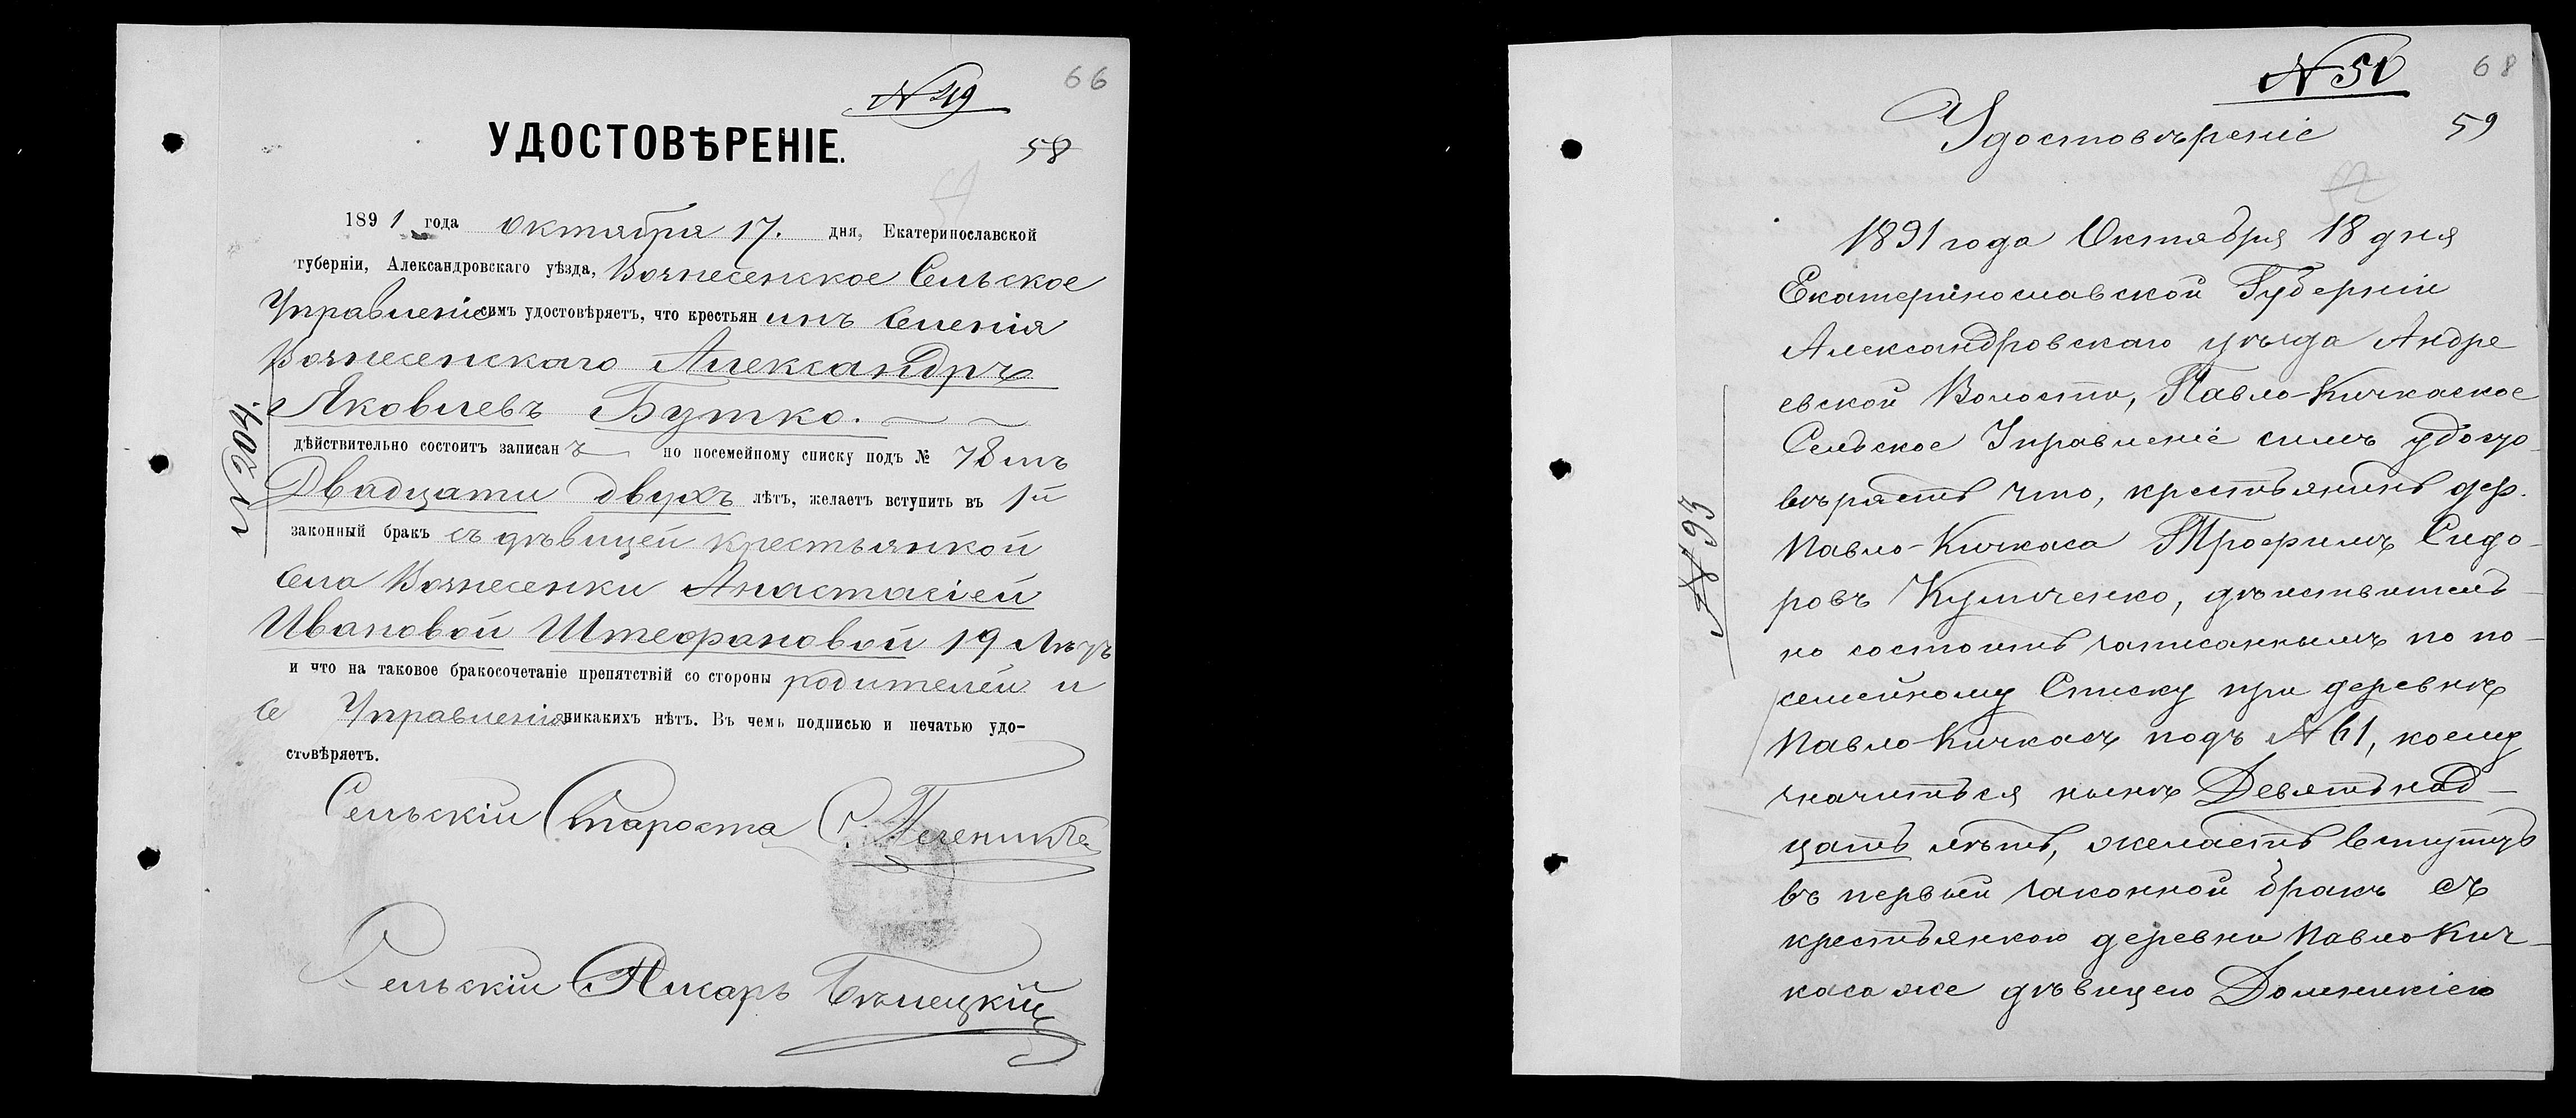 66
№ 49
УДОСТОВѢРЕНІЕ.
58
1891 года Октября 17. дня, Екатеринославской
губерніи, Александровскаго уѣзда, Вознесенское Сельское
Управленіе симъ удостовѣряетъ, что крестьянинъ Селенія
Вознесенскаго Александръ
Яковлевъ Бутко.
дѣйствительно состоитъ записанъ по посемейному списку подъ № 78 мъ
Двадцати двухъ лѣтъ, желаетъ вступить въ 1й
законный бракъ съ дѣвицей крестьянкой
Села Вознесенки Анастасіей
Ивановой Штефановой 19 лѣтъ
и что на таковое бракосочетаніе препятствій со стороны родителей и
Се Управленія никакихъ нѣтъ. Въ чемъ подписью и печатью удо-
стовѣряетъ.
Сельскій Староста С.
Сельскій Писарь Бѣлецкій
№ 204.
№ 50
68
Удостовѣреніе
59
1891 года Октября 18 дня
Екатеринославской Губерніи
Александровскаго уѣзда Андре
евской Волости, Павло-Кичкаское
Сельское Управленіе симъ удосто-
вѣряетъ что, крестьянинъ дер.
Павло-Кичкаса Трофимъ Сидо-
ровъ Куличенко, дѣйствитель-
но состоитъ записаннымъ по по-
семейному Списку при деревнѣ
Павло-Кичкасѣ подъ № 61, коему
значиться нынѣ Девятьнад-
цать лѣтъ, желаетъ вступить
въ первый законной бракъ съ
крестьянкою деревни Павло Кич-
каса же дѣвицею Домникіею
№ 93